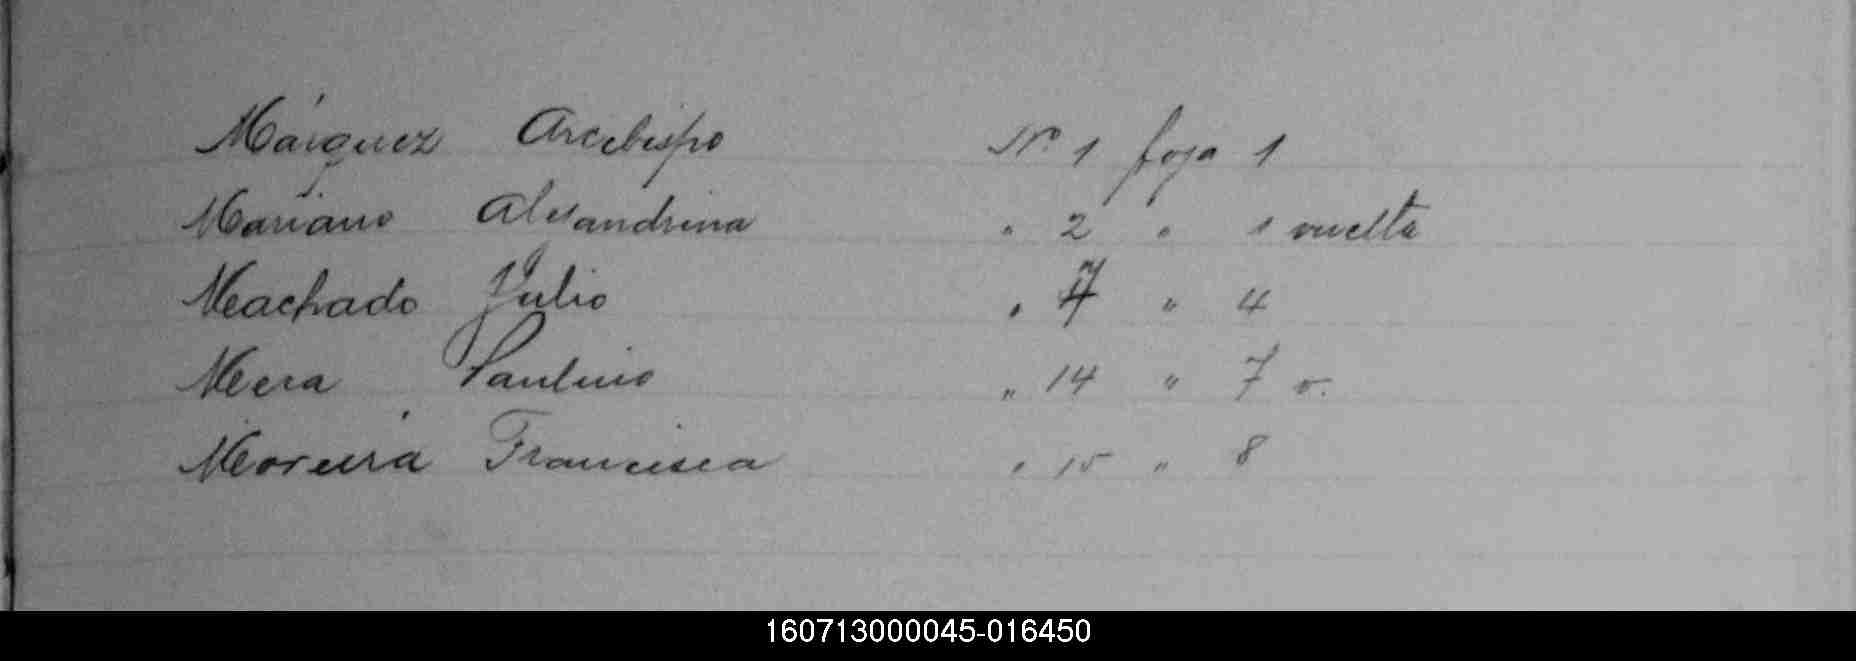 Márquez Arcebispo Nº 1 foja 1
Mariano Alesandrina " 2 " 1 vuelta
Machado Julio " 7 " 4
Mera Paulino " 14 " 7 v.
Moreira Francisca " 15 " 8
160713000045-016450